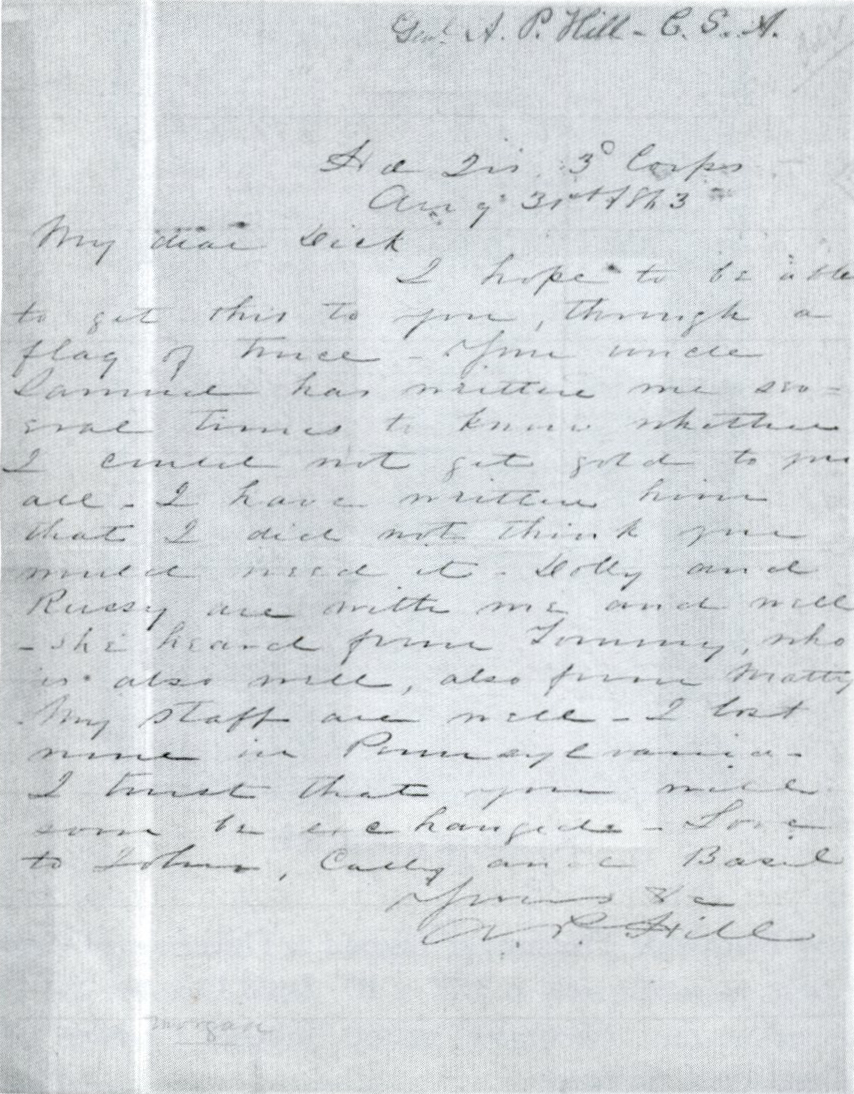 Genl. A. P. Hill - C. S. A.
Hd Qrs. 3d Corps
Aug 31st 1863
My dear Dick
I hope to be able
to get this to you, through a
flag of truce - Your uncle
Samuel has written me sev-
eral times to know whether
I could not get gold to you
all - I have written him
that I did not think you
would need it - Dolly and
Russy are with me and well
- She heard from Tommy, who
is also well, also from Matty
My Staff are well - I lost
none in Pennsylvania -
I trust that you will
soon be exchanged - Love
to John, Cally and Basil
Yours &c
A. P. Hill
Morgan